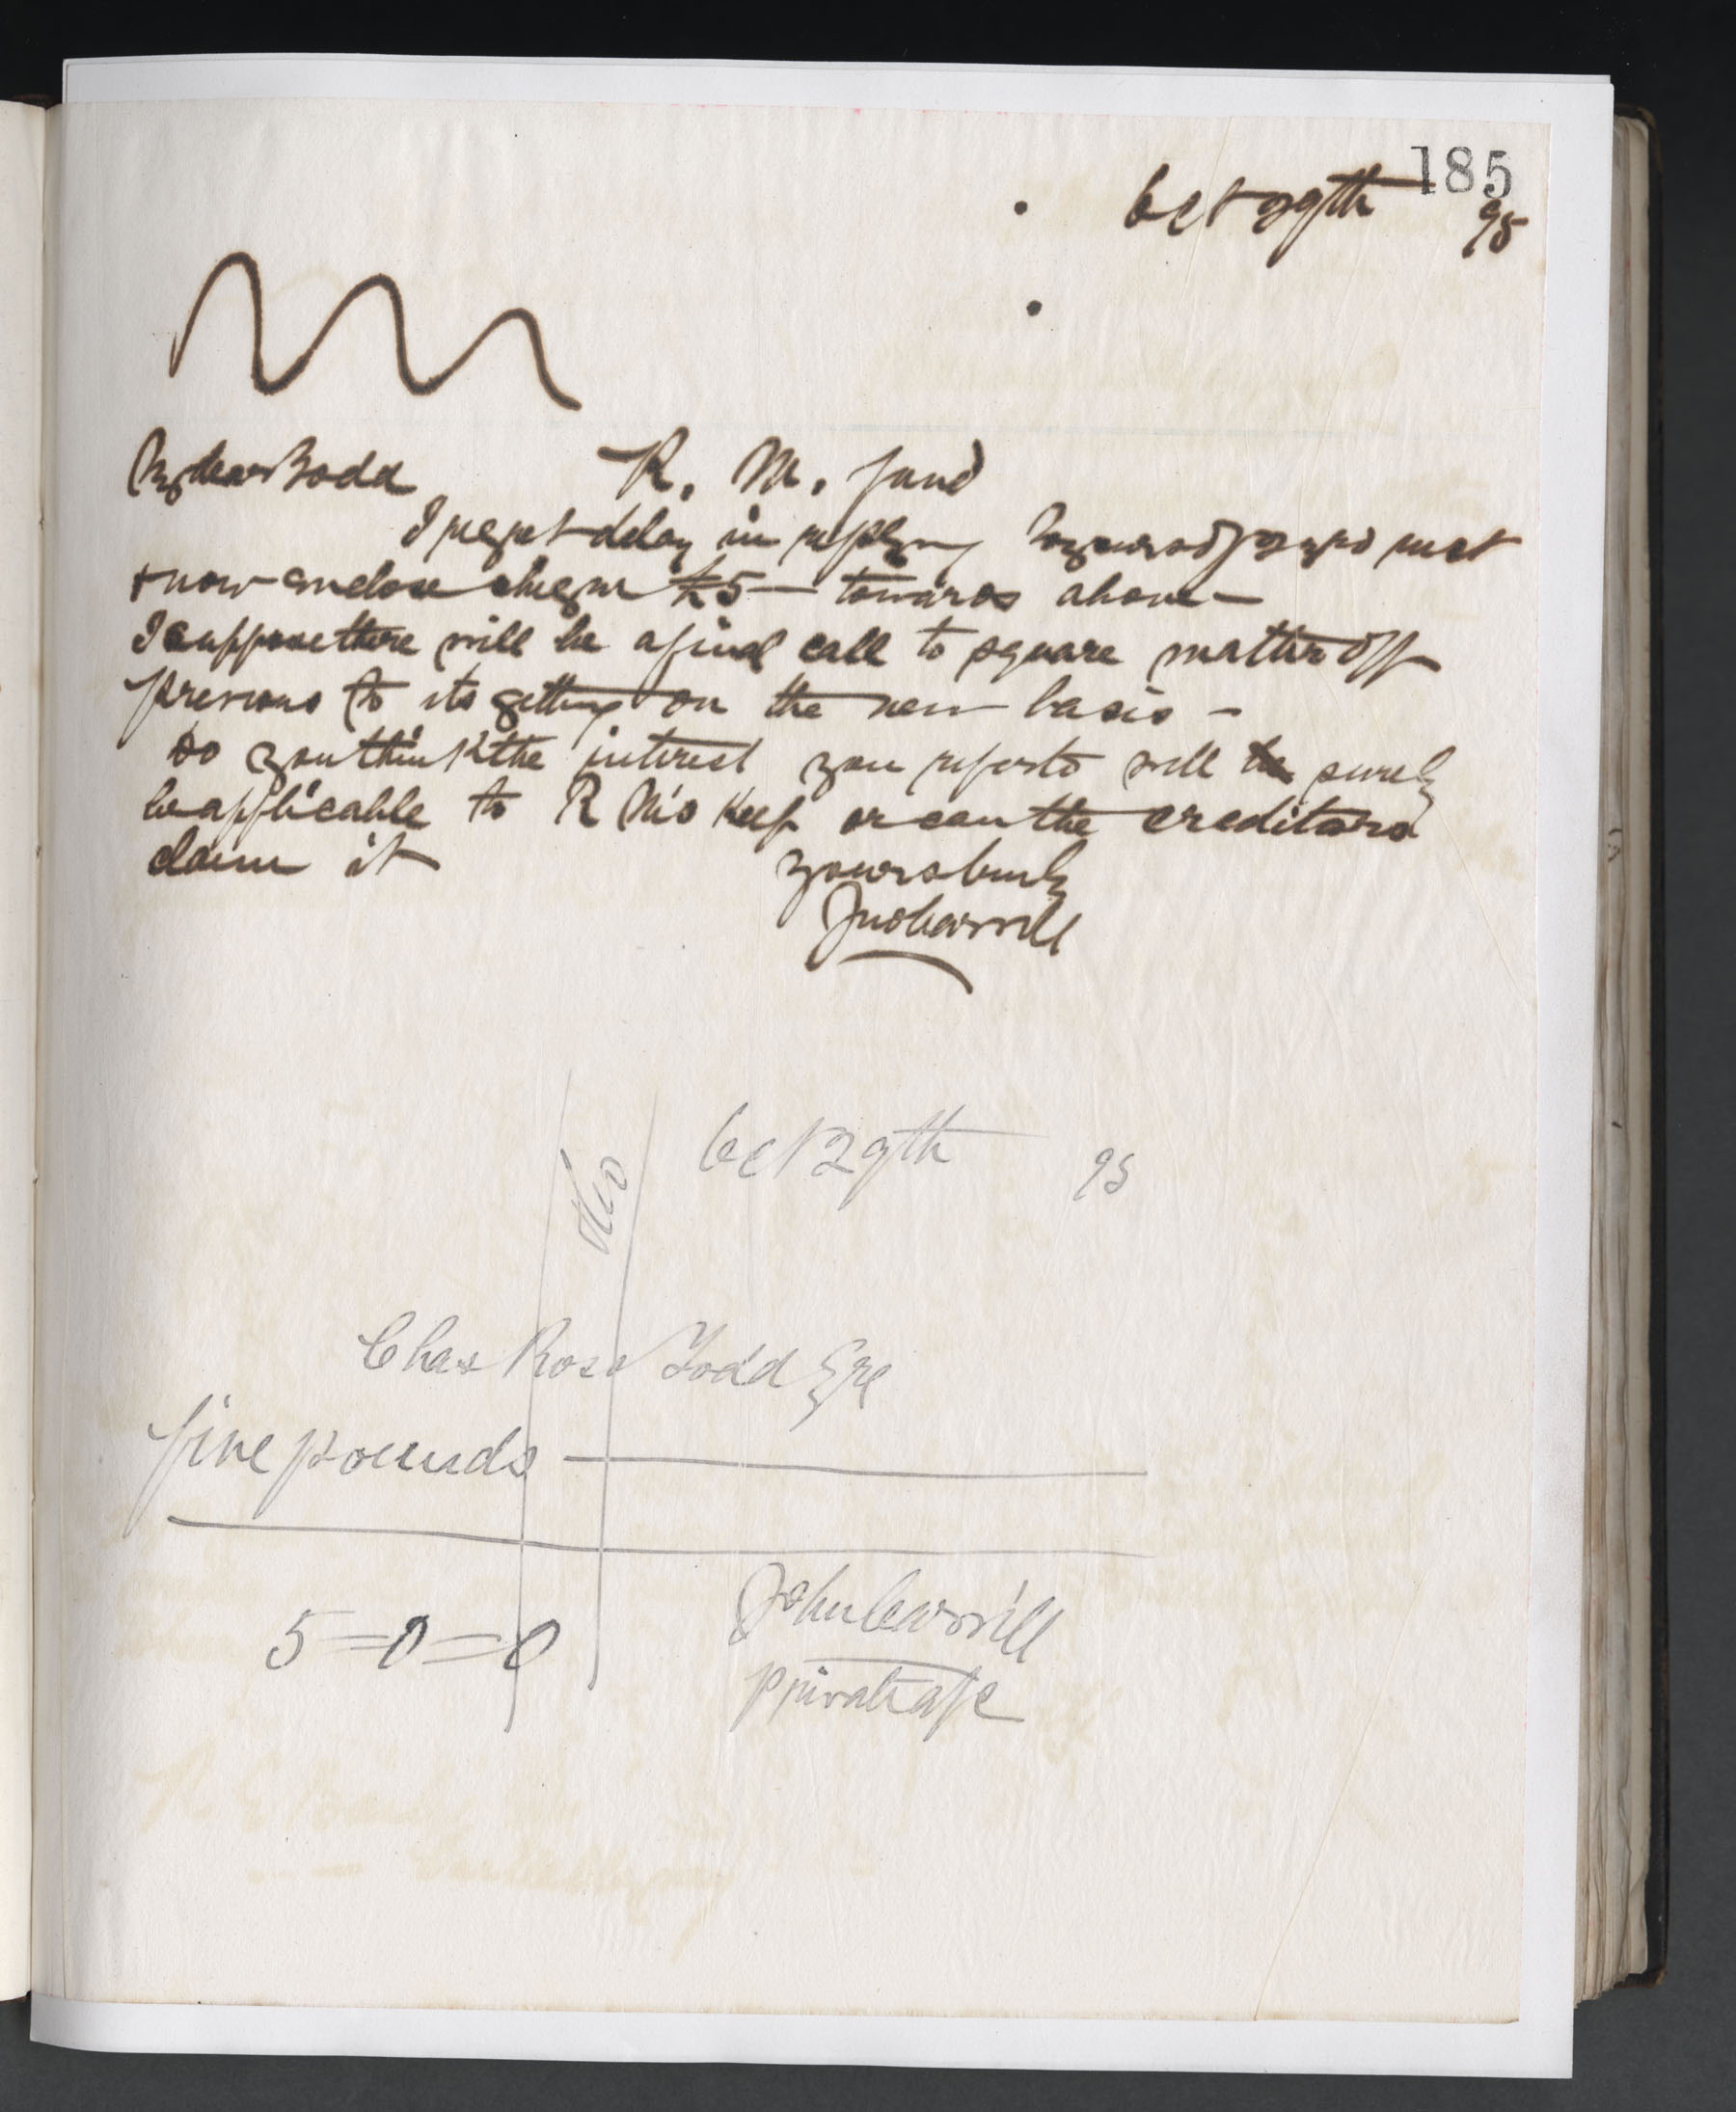 185
Oct 29th 95
My dear Todd
R. M. fund
I regret delay in replying to yours of inst
& now enclose cheque £5 — towards above —
I suppose there will be a final call to square matter off
previous to its getting on the new basis —
Do you think the interest you refer to will be surely
be applicable to R M's keep or can the creditors
claim it
yours truly
Jno Carvill
Oct 29th 95
Chas Ross Todd Esq
five pounds
5=0=0
John Carvill
private a/c